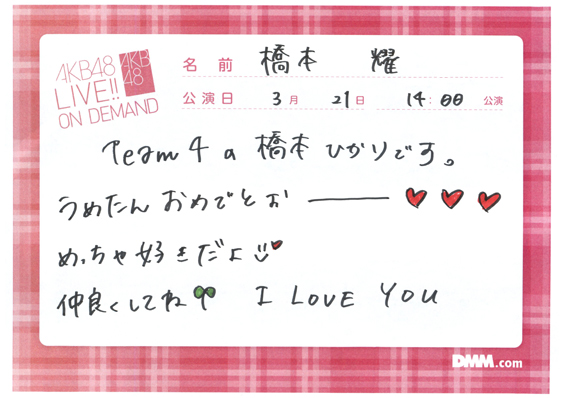 AKB48
LIVE!!
ON DEMAND
AKB
48
名前 橋本 耀
公演日 3月 21日 14:00 公演
Team 4 の 橋本 ひかりです。
うめたん おめでとお ———
めっちゃ好きだよ
仲良くしてね I LOVE YOU
DMM.com